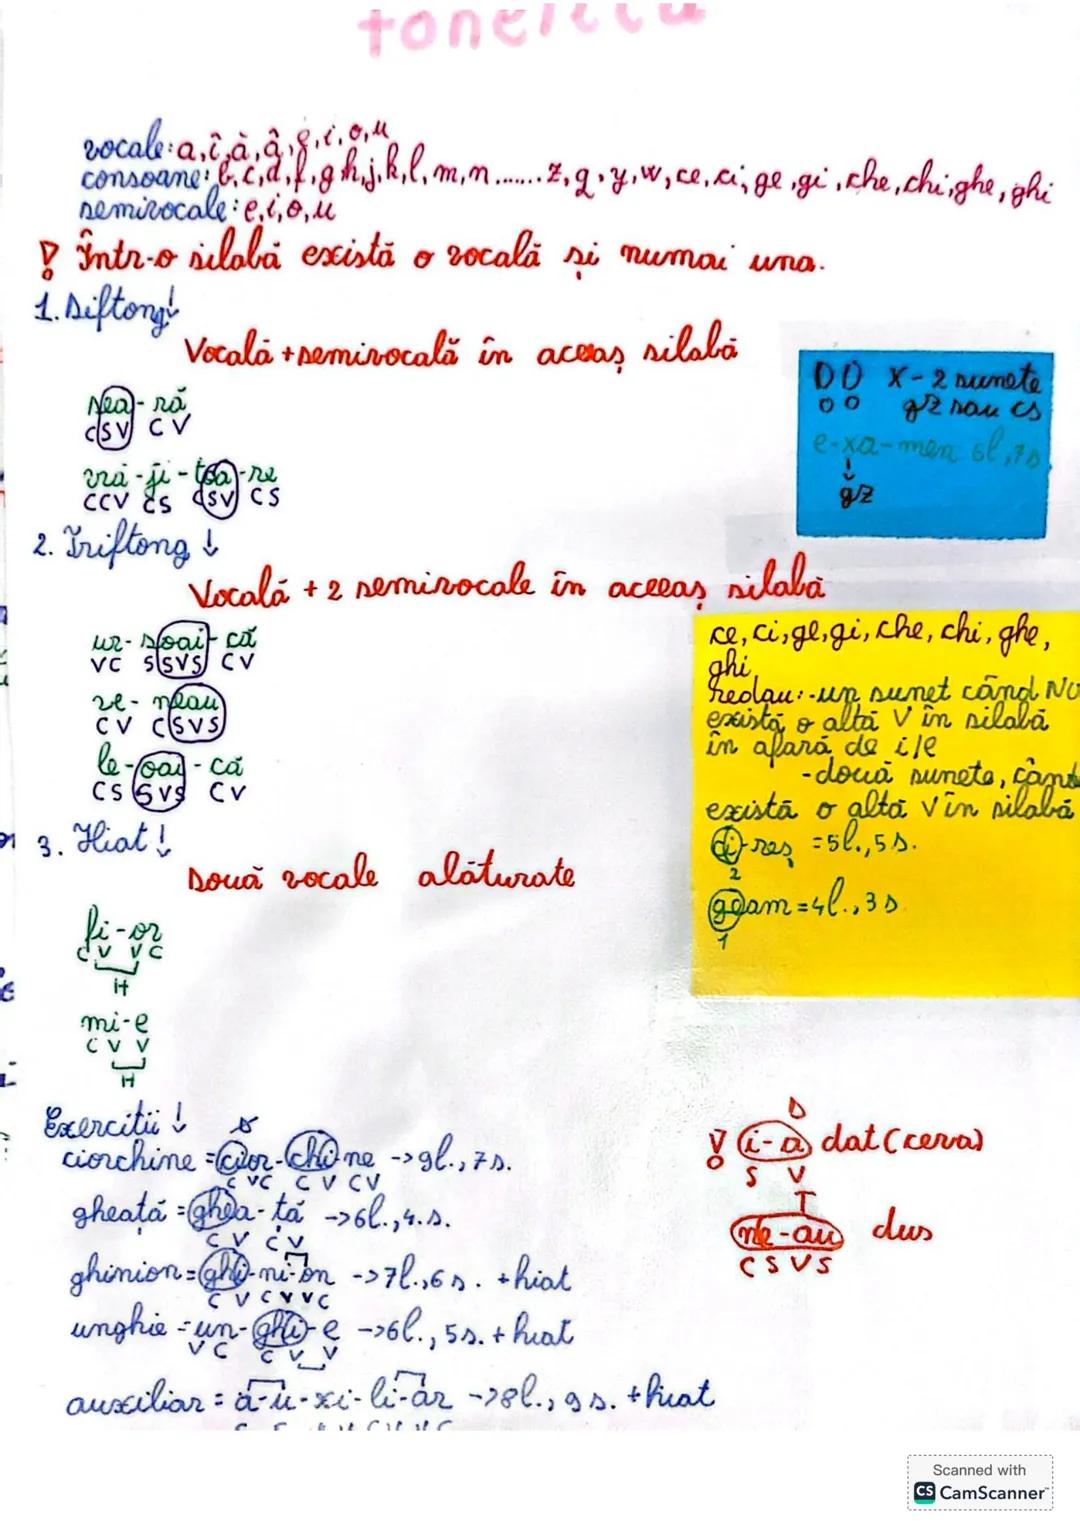 fonetica
vocale: a, î, ă, â, e, i, o, u
consoane: b, c, d, f, g, h, j, k, l, m, n.......z, q, y, w, ce, ci, ge, gi, che, chi, ghe, ghi
semivocale: e, i, o, u
! Într-o silabă există o vocală și numai una.
1. Diftong↓
Vocală + semivocală în aceeaș silabă
sea-ră
CSV CV
vră-ji-toa-re
CCV CS CSV CS
2. Triftong ↓
Vocală + 2 semivocale în aceeaș silabă
ur-soai-că
VC SSVS CV
ve-neau
CV CSVS
le-oai-că
CS SVS CV
3. Hiat↓
Două vocale alăturate
fi-or
CV VC
H
mi-e
CV V
H
!! X - 2 sunete
gz sau cs
e-xa-men 6l,7s
↓
gz
ce, ci, ge, gi, che, chi, ghe,
ghi
redau: -un sunet când NU
există o altă V în silabă
în afară de i/e
-două sunete, când
există o altă V în silabă
ci-reș = 5l., 5s.
2
geam = 4l., 3s
1
Exercitii ↓
ciorchine = cior-chi-ne -> 9l., 7s.
CVC CV CV
gheață = ghea-ță -> 6l., 4.s.
CV CV
ghinion = ghi-ni-on -> 7l., 6s. + hiat
CV CV VC
unghie = un-ghi-e -> 6l., 5s. + hiat
VC CV V
auxiliar = a-u-xi-li-ar -> 8l., 9s. + hiat
D
! i-a dat (ceva)
S V
T
ne-au dus
CSVS
Scanned with
CS CamScanner